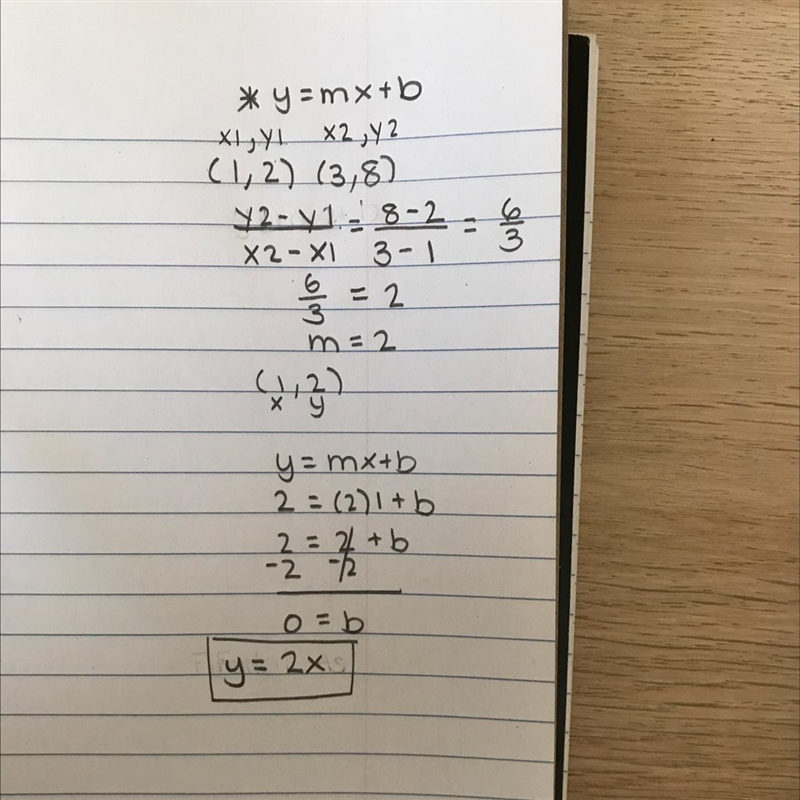 * y=mx+b
x1,y1 x2,y2
(1,2) (3,8)
y2-y1/x2-x1 = 8-2/3-1 = 6/3
6/3 = 2
m=2
(1,2)
x y
y=mx+b
2=(2)1+b
2=2+b
-2 -2
0=b
y=2x